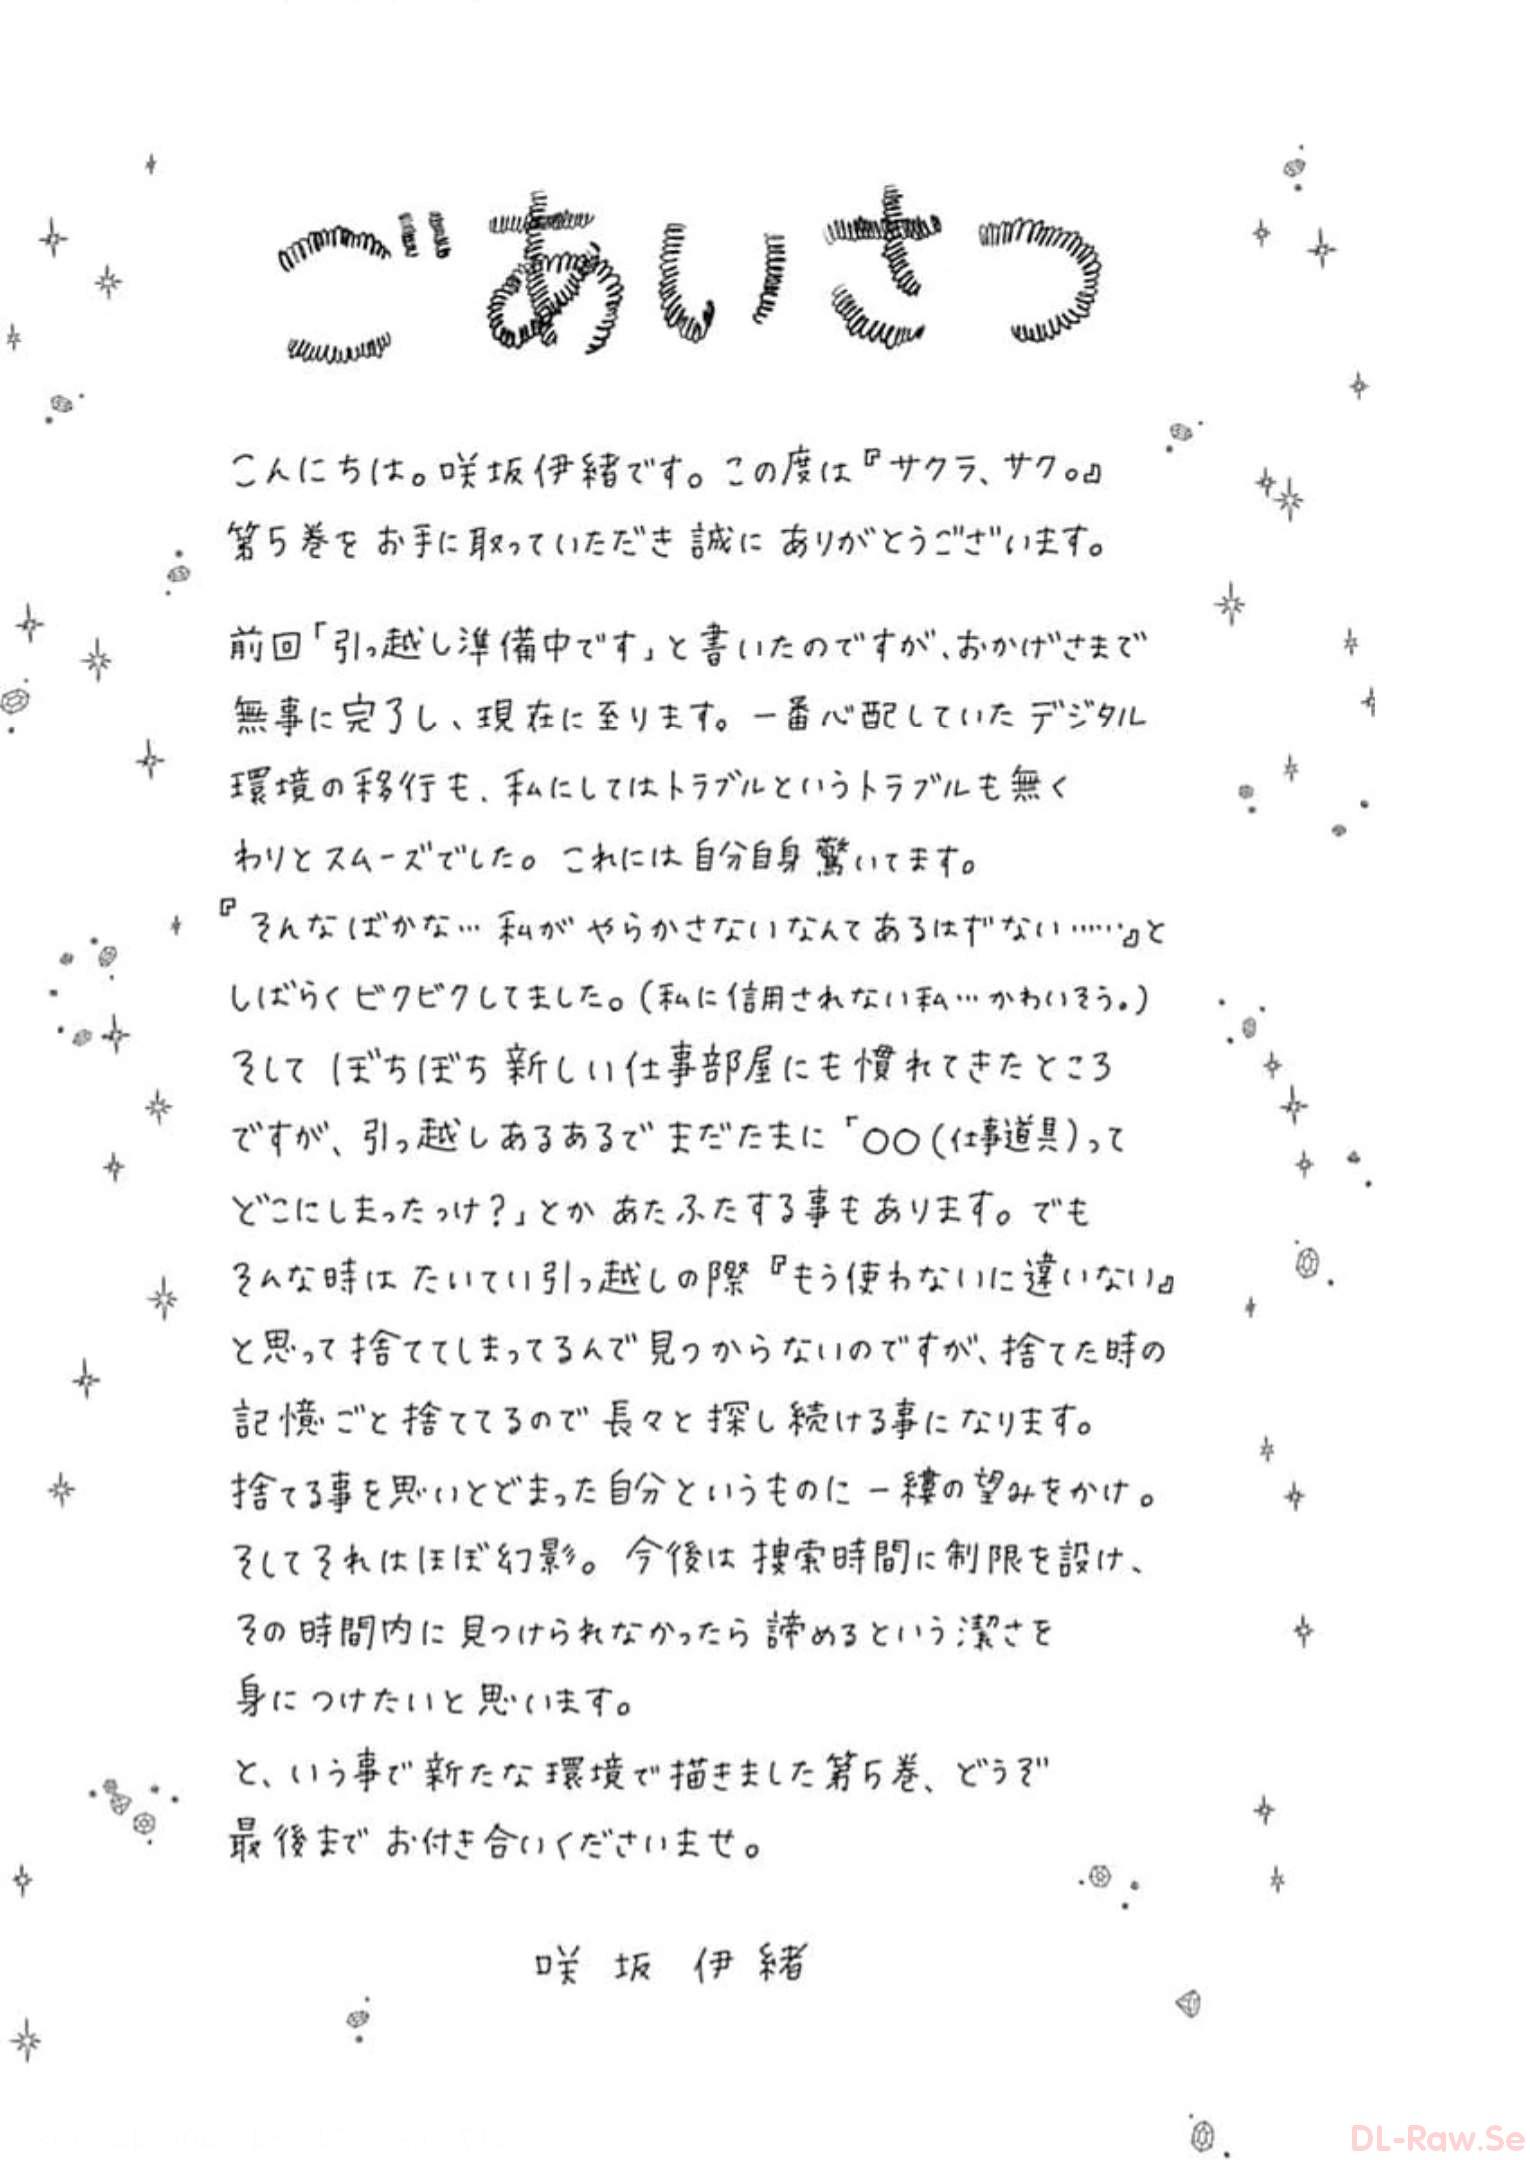 ごあいさつ
こんにちは。咲坂伊緒です。この度は『サクラ、サク。』
第5巻をお手に取っていただき誠にありがとうございます。
前回「引っ越し準備中です」と書いたのですが、おかげさまで
無事に完了し、現在に至ります。一番心配していたデジタル
環境の移行も、私にしてはトラブルというトラブルも無く
わりとスムーズでした。これには自分自身驚いてます。
『そんなばかな…私がやらかさないなんてあるはずない……』と
しばらくビクビクしてました。(私に信用されない私…かわいそう。)
そしてぼちぼち新しい仕事部屋にも慣れてきたところ
ですが、引っ越しあるあるでまだたまに「○○(仕事道具)って
どこにしまったっけ?」とかあたふたする事もあります。でも
そんな時はたいてい引っ越しの際『もう使わないに違いない』
と思って捨ててしまってるんで見つからないのですが、捨てた時の
記憶ごと捨ててるので長々と探し続ける事になります。
捨てる事を思いとどまった自分というものに一縷の望みをかけ。
そしてそれはほぼ幻影。今後は捜索時間に制限を設け、
その時間内に見つけられなかったら諦めるという潔さを
身につけたいと思います。
と、いう事で新たな環境で描きました第5巻、どうぞ
最後までお付き合いくださいませ。
咲坂伊緒
DL-Raw.Se